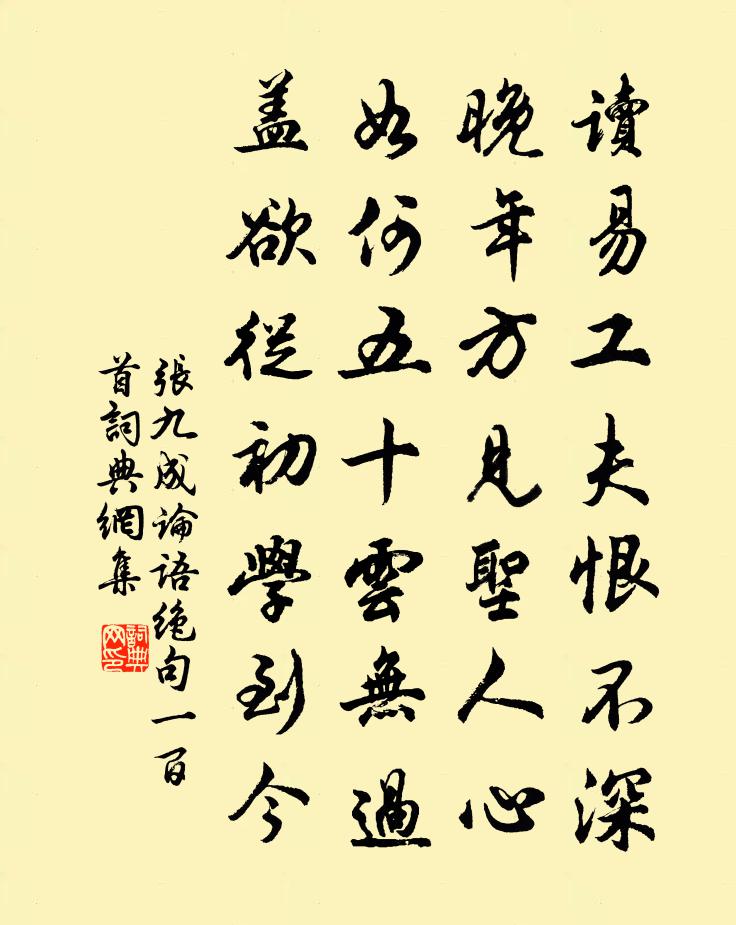 讀易工夫恨不深
晚年方見聖人心
如何五十雲無過
蓋欲從初學到今
張九成論語絶句一百
首詞典網集
詞典
网印